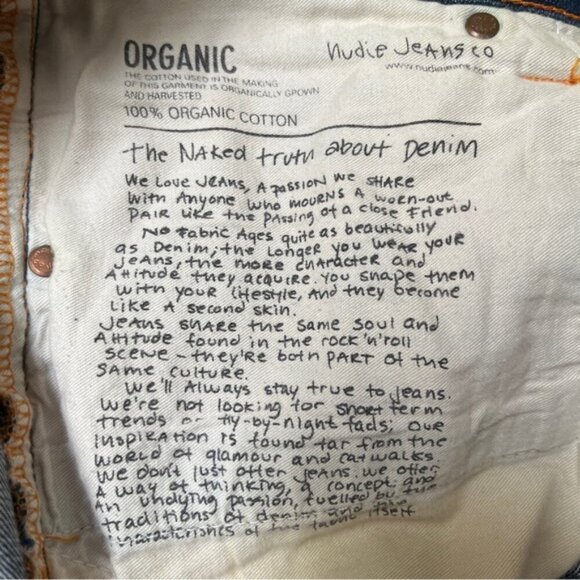 ORGANIC
nudie Jeans co
www.nudiejeans.com
THE COTTON USED IN THE MAKING
OF THIS GARMENT IS ORGANICALLY GROWN
AND HARVESTED
100% ORGANIC COTTON
the NAKED truth about Denim
We Love JeANS, A pASSION We SHARE
With Anyone who mourns A worn-out
PAIR Like the Passing of a close Friend.
No Fabric Ages quite as beautifully
as Denim; the Longer you WEAR your
Jeans, the more character and
Attitude they Acquire. You shape them
with your lifestyle, And they become
Like A second skin.
Jeans share the same soul and
Attitude found in the rock'n'roll
scene - they're both PART of the
same culture.
We'll Always stay true to jeans.
We're not looking for short term
trends or fly-by-night fads; our
Inspiration is found far from the
world of glamour and catwalks
We don't just offer jeans. We offer
A way of thinking, a concept and
An undying passion, fuelled by the
traditions of denim and the
characteristics of the fabric itself